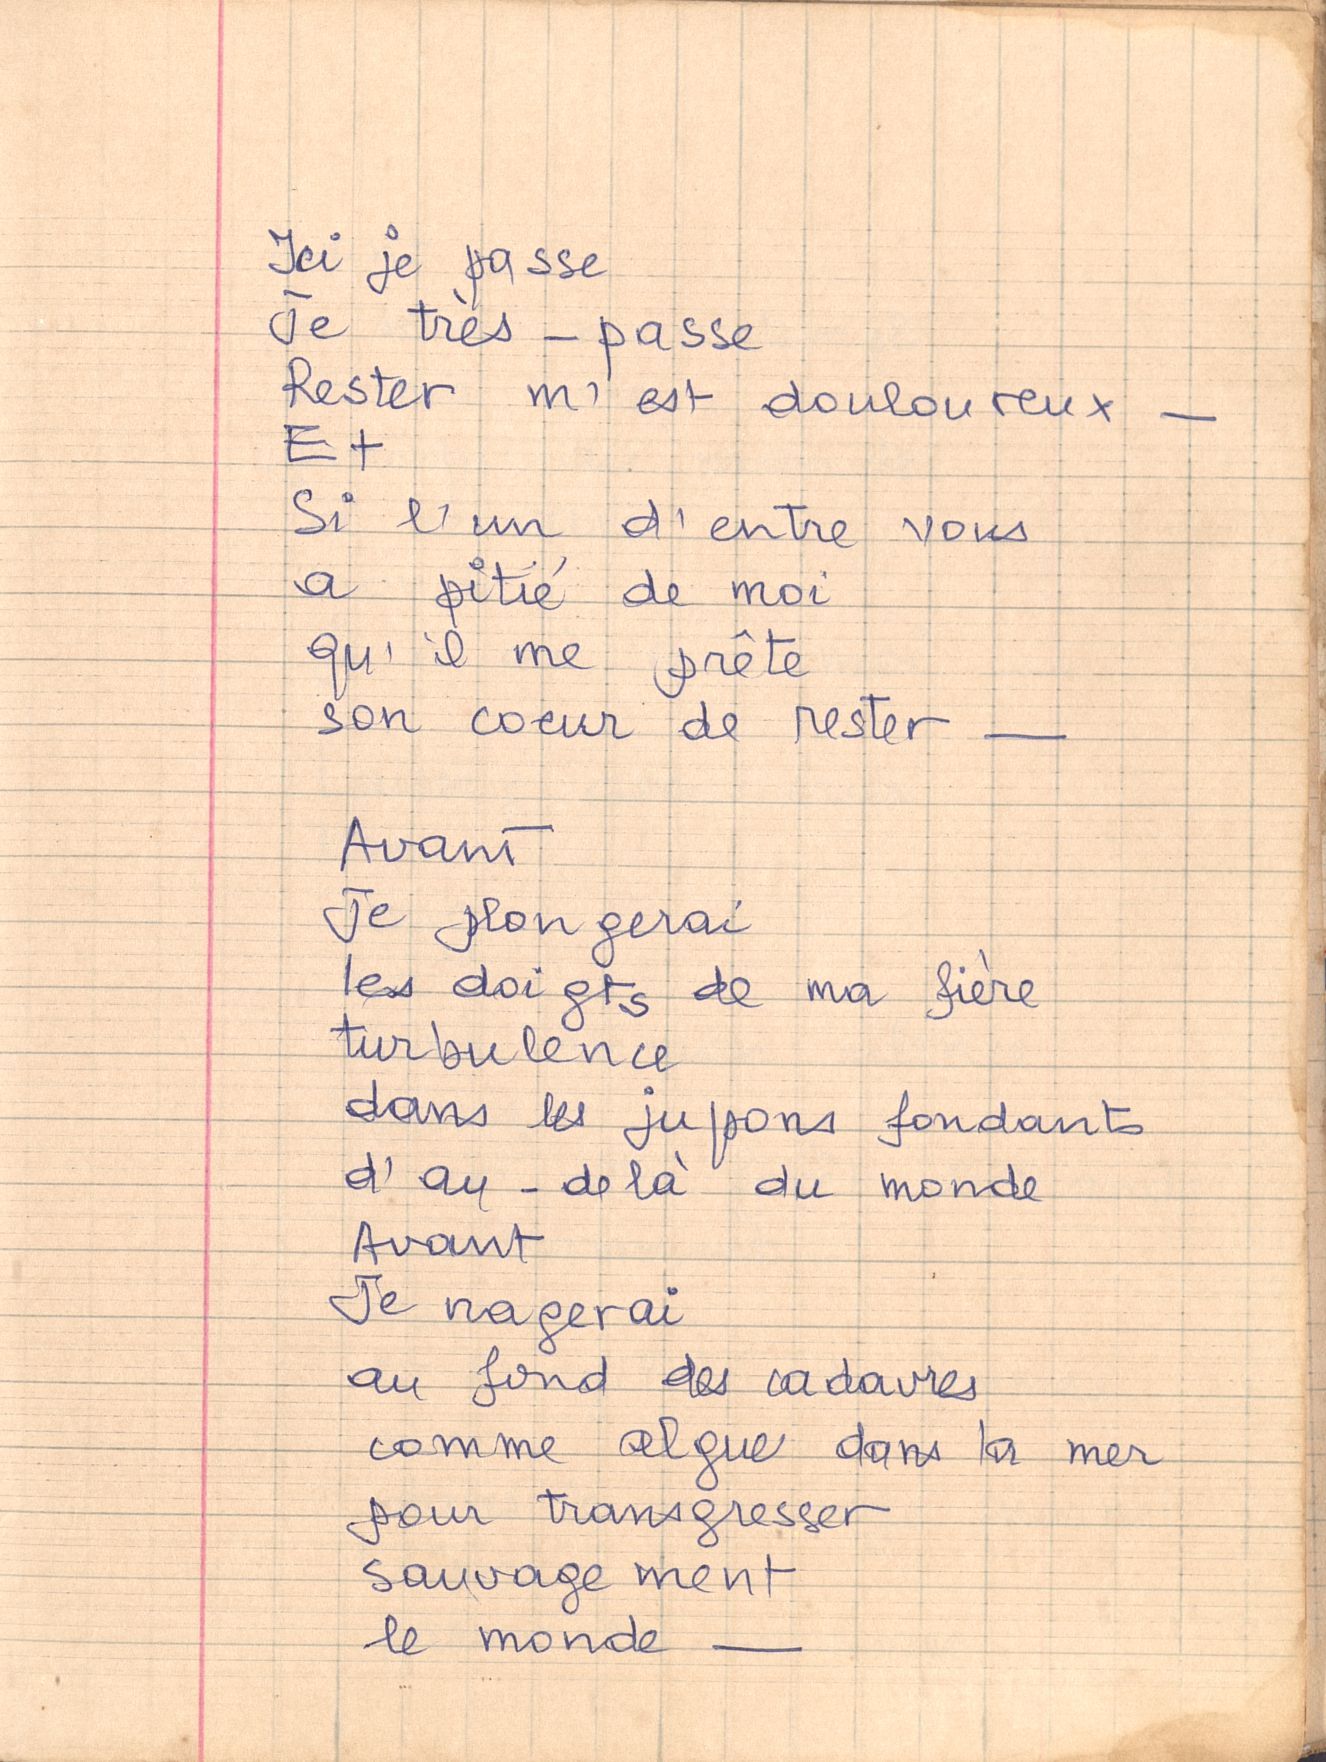 Ici je passe
Je très-passe
Rester m'est douloureux —
Et
Si l'un d'entre vous
a pitié de moi
qu'il me prête
son coeur de rester —
Avant
Je plongerai
les doigts de ma fière
turbulence
dans les jupons fondants
d'au-delà du monde
Avant
Je nagerai
au fond des cadavres
comme algue dans la mer
pour transgresser
sauvagement
le monde —